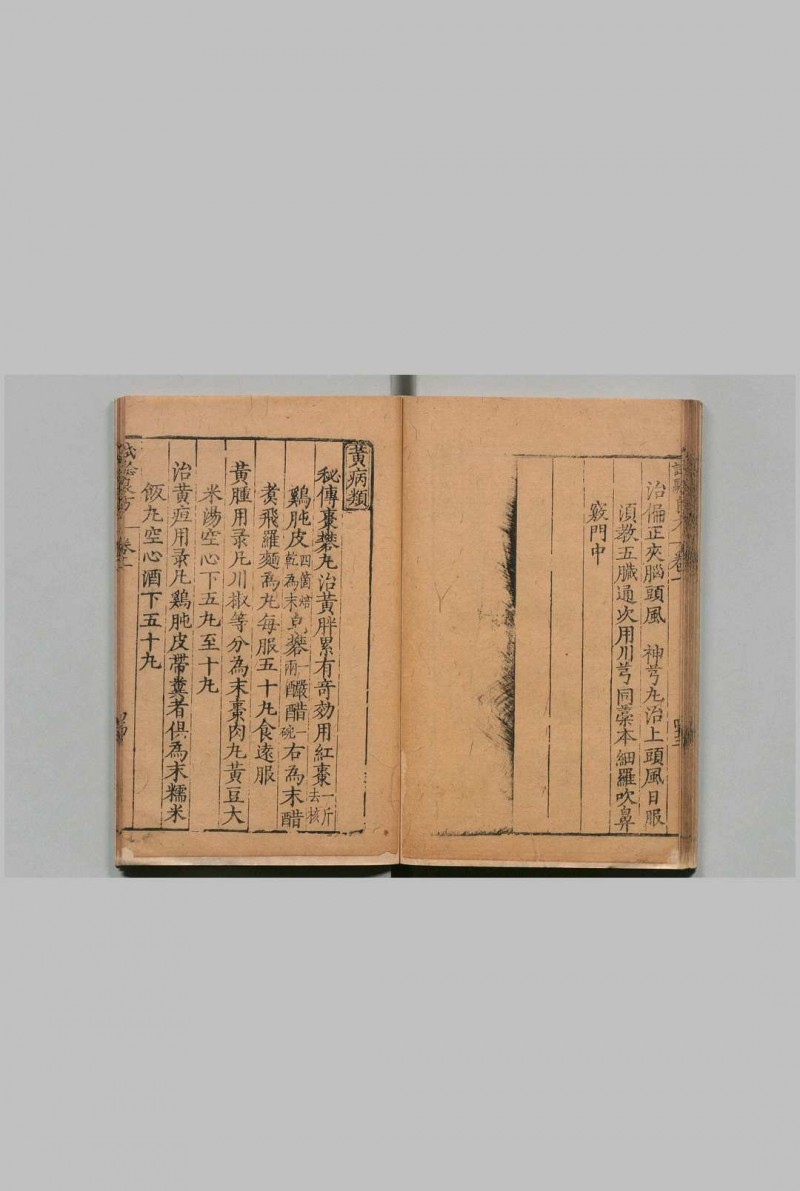 治偏正夾腦頭風　神芎丸治上頭風日服
須教五臟通次用川芎同藁本細羅吹鼻
竅門中
卷一
黃病類
秘傳棗礬丸治黃胖累有奇効用紅棗一斤去核
鷄肫皮四箇焙乾為末皂礬一兩釅醋一碗右為末醋
煑飛羅麵為丸每服五十丸食遠服
黃腫用彔凡川椒等分為末棗肉丸黃豆大
米湯空心下五丸至十丸
治黃疸用彔凡鷄肫皮帶糞者俱為末糯米
飯丸空心酒下五十丸